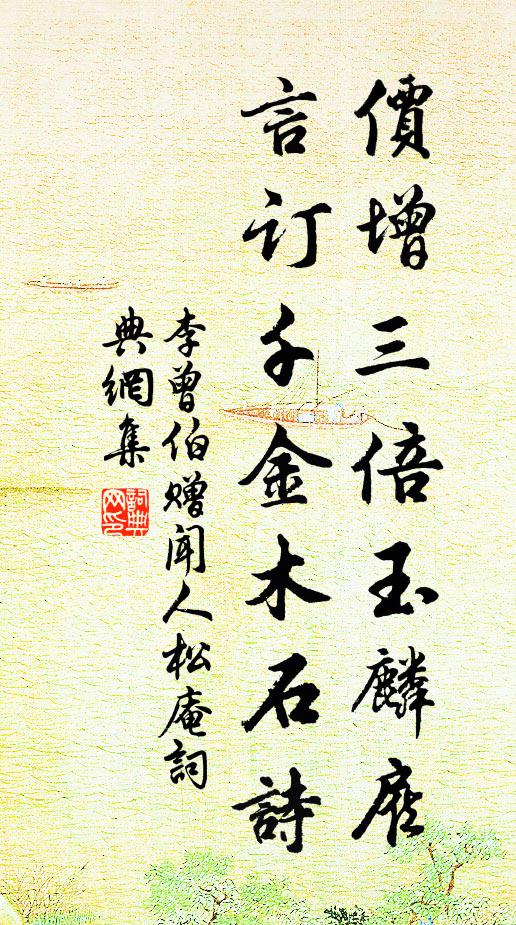 價增三倍玉麟扆
言订千金木石詩
李曾伯赠闻人松庵詞
典網集
詞典
网印